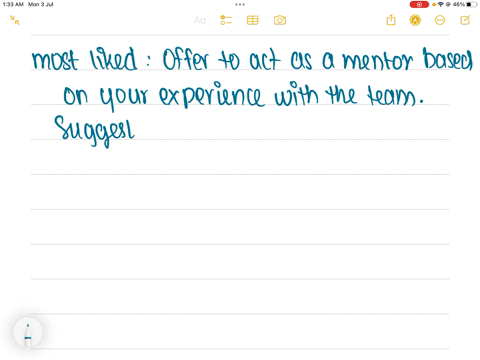 1:33 AM Mon 3 Jul
46%
Aa
most liked : Offer to act as a mentor based
on your experience with the team.
Suggest